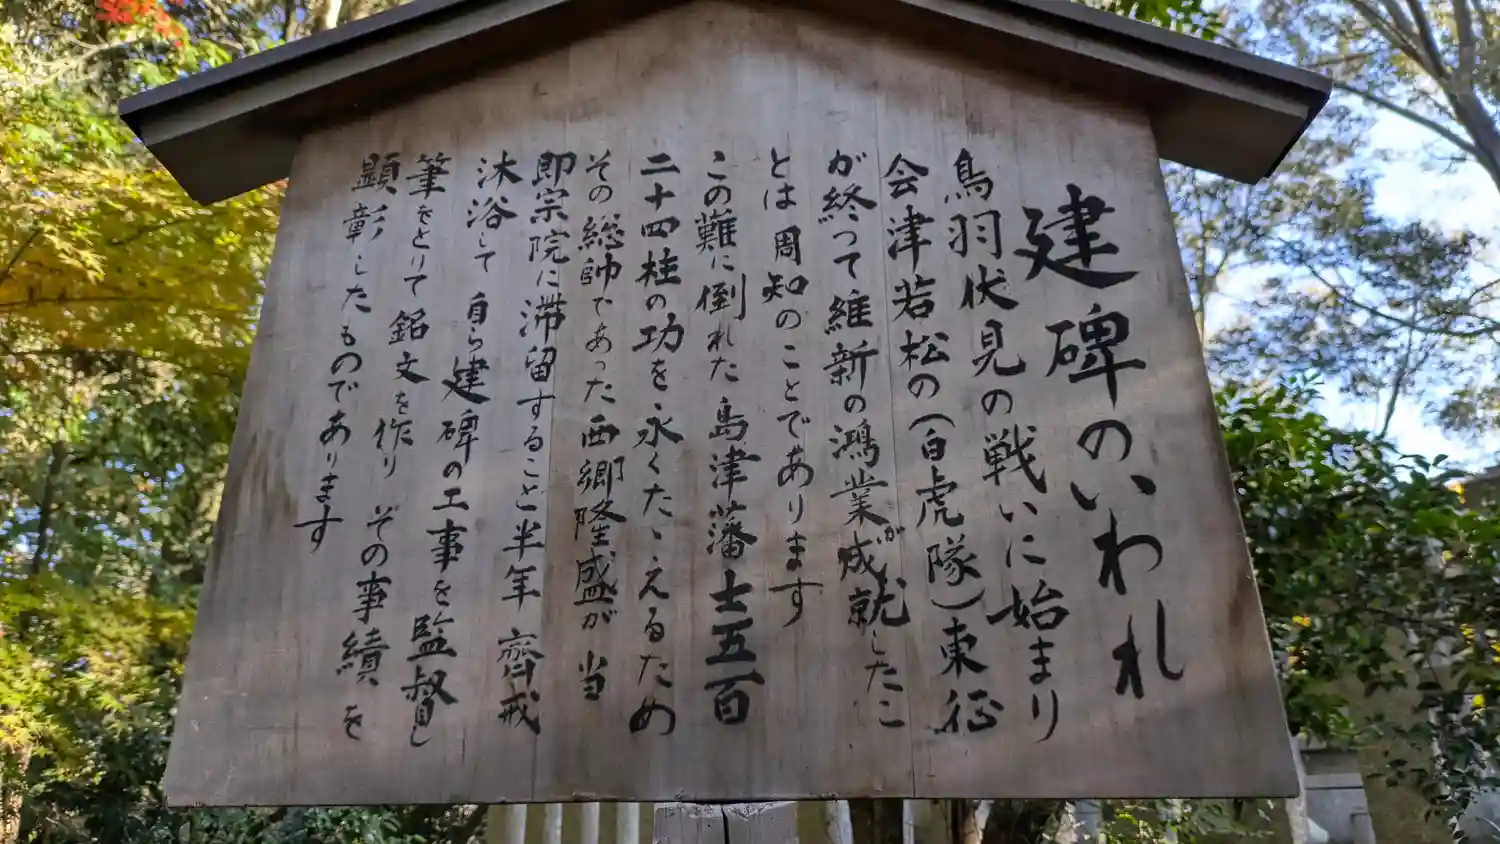 建碑のいわれ
鳥羽伏見の戦いに始まり
会津若松の(白虎隊)東征
が終って維新の鴻業が成就したこ
とは周知のことであります
この難に倒れた島津藩士五百
二十四柱の功を永くたゝえるため
その総帥であった西郷隆盛が 当
即宗院に滞留すること半年 齋戒
沐浴して 自ら建碑の工事を監督し
筆をとりて銘文を作り その事績を
顕彰したものであります